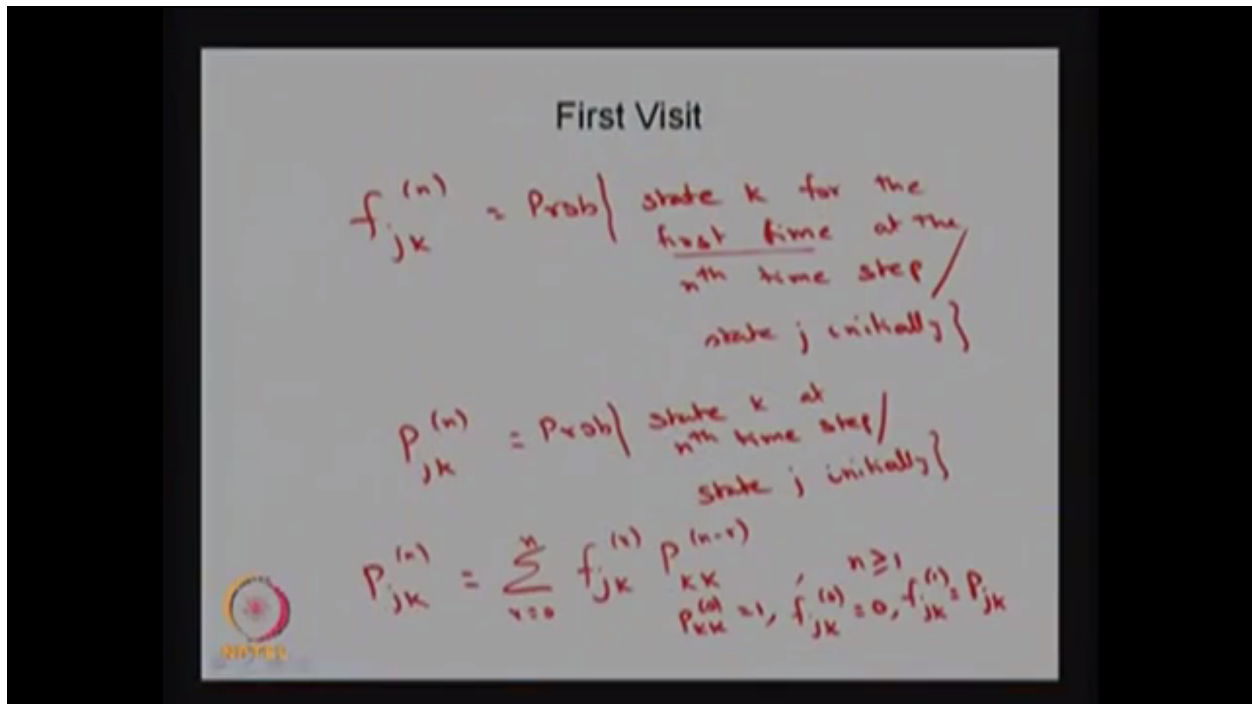 First Visit
f_{jk}^{(n)} = Prob{ state k for the
first time at the
n^{th} time step /
state j initially}
P_{jk}^{(n)} = Prob{ state k at
n^{th} time step /
state j initially}
P_{jk}^{(n)} = \sum_{r=0}^{n} f_{jk}^{(r)} P_{kk}^{(n-r)} , n ≥ 1
P_{kk}^{(0)} = 1, f_{jk}^{(0)} = 0, f_{jk}^{(1)} = P_{jk}
NPTEL